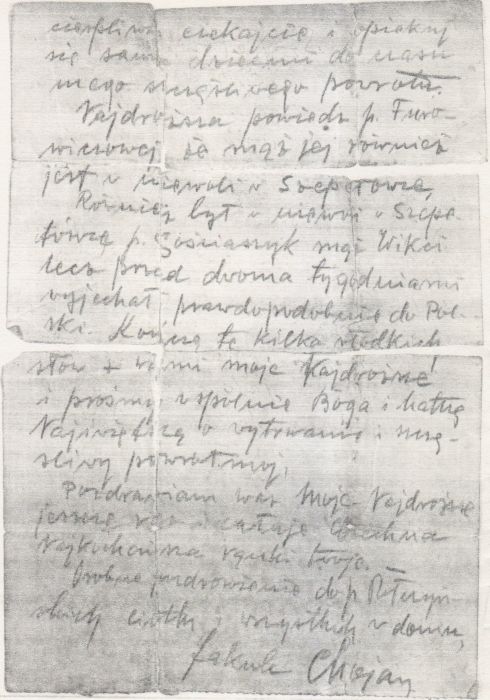 cierpliwie czekajcie i opiekuj
się sama dziećmi do czasu
mego szczęśliwego powrotu.
Najdroższa powiedz p. Furo-
wiczowej że mąż jej również
jest w niewoli w Szepetowce,
Również był w niewoli w Szepe-
towce p. mąż Wikci
lecz przed dwoma tygodniami
wyjechał prawdopodobnie do Pol-
ski. Kończę te kilka słodkich
słów z wami moje Najdroższe
i prośmy wspólnie Boga i Matkę
Najświętszą o wytrwanie i szczę-
śliwy powrót mój.
Pozdrawiam was moje Najdroższe
jeszcze raz i całuję
Najukochańsza rączki twoje.
Osobne pozdrowienie do p.
skich ciotki i wszystkich w domu,
Jakub Chojan